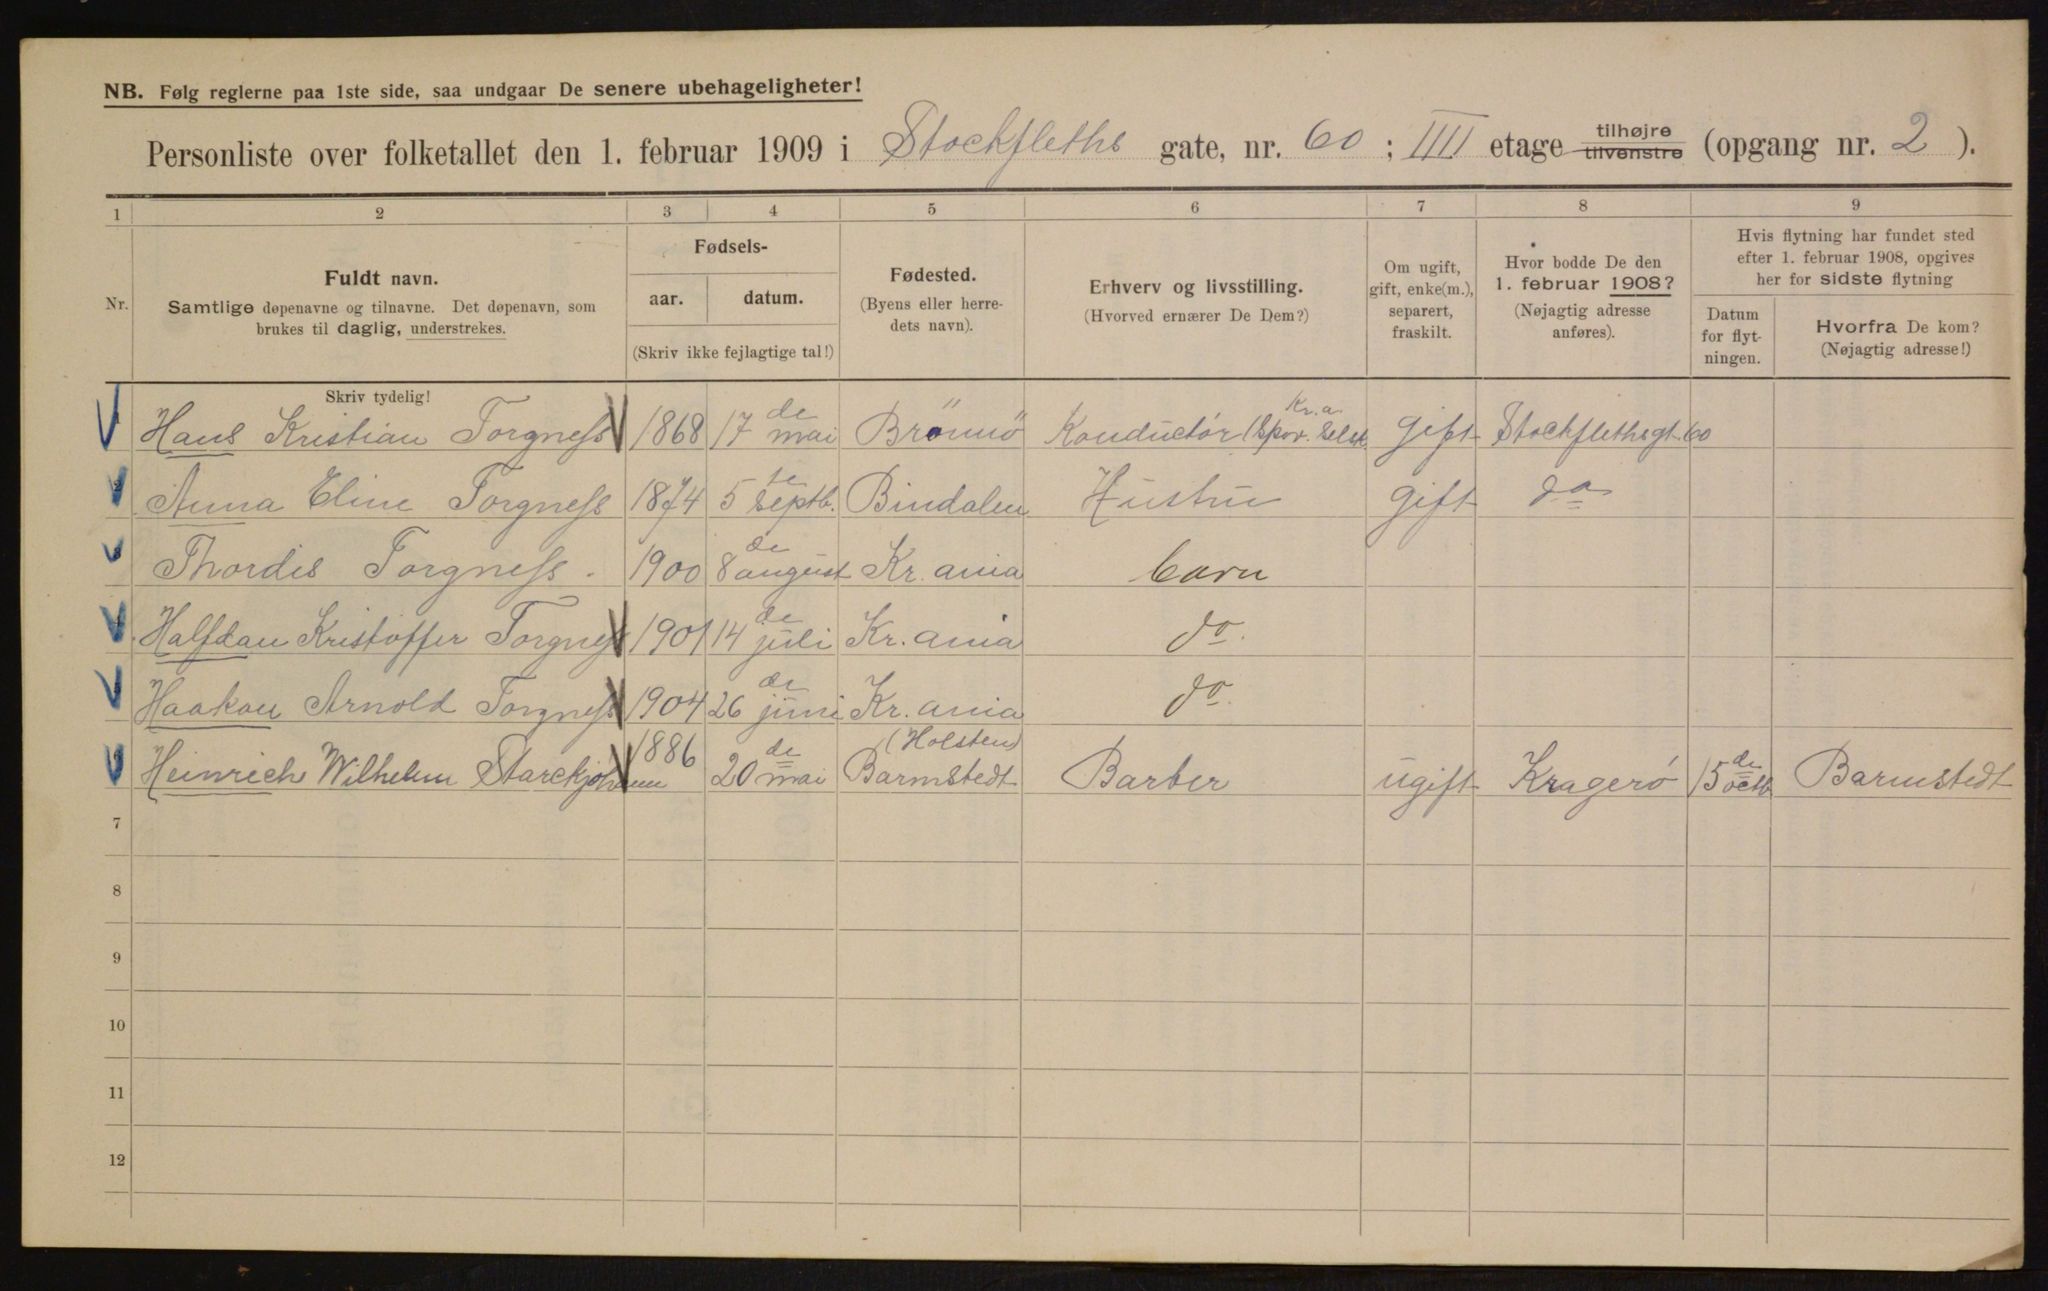 NB. Følg reglerne paa 1ste side, saa undgaar De senere ubehageligheter!
Personliste over folketallet den 1. februar 1909 i Stockfleths gate, nr. 60; IIII etage tilhøjre tilvenstre (opgang nr. 2).
1 2 3 4 5 6 7 8 9
Nr.
Fuldt navn.
Samtlige døpenavne og tilnavne. Det døpenavn, som
brukes til daglig, understrekes.
Fødsels-
aar. datum.
(Skriv ikke fejlagtige tal!)
Fødested.
(Byens eller herre-
dets navn).
Erhverv og livsstilling.
(Hvorved ernærer De Dem?)
Om ugift,
gift, enke(m.),
separert,
fraskilt.
Hvor bodde De den
1. februar 1908?
(Nøjagtig adresse
anføres).
Hvis flytning har fundet sted
efter 1. februar 1908, opgives
her for sidste flytning
Datum
for flyt-
ningen.
Hvorfra De kom?
(Nøjagtig adresse!)
Skriv tydelig!
Hans Kristian Torgness 1868 17 de mai Brønnø Konductør Kr.a. Spor. Selsk. gift Stockflethsgt. 60
2 Anna Eline Torgness 1874 5 te Septb. Bindalen Hustru gift do
3 Thordis Torgness. 1900 8 de august Kr.ania barn
4 Halfdan Kristoffer Torgness 1901 14 de juli Kr.ania do.
Haakon Arnold Torgness 1904 26 de juni Kr.ania do.
Heinrich Wilhelm Starckjohann 1886 20 de mai (Holsten) Barmstedt Barber ugift Kragerö 15 de octb. Barmstedt
7
8
9
10
11
12